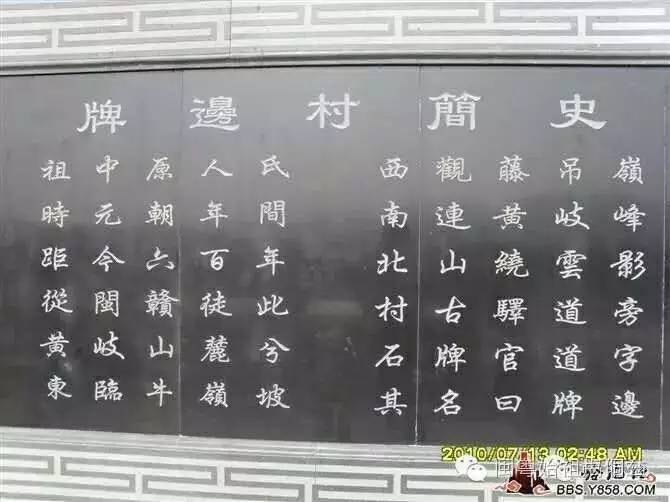 牌邊村簡史
祖中原人氏 西觀藤吊嶺
時元朝年間 南連黃岐峰
距今六百年 北山繞雲影
從閩贛徒此 村古驛道旁
黃岐山麓兮 石牌官道字
東臨牛嶺坡 其名曰牌邊
2010/07/13 02:48 AM
BBS.Y858.COM